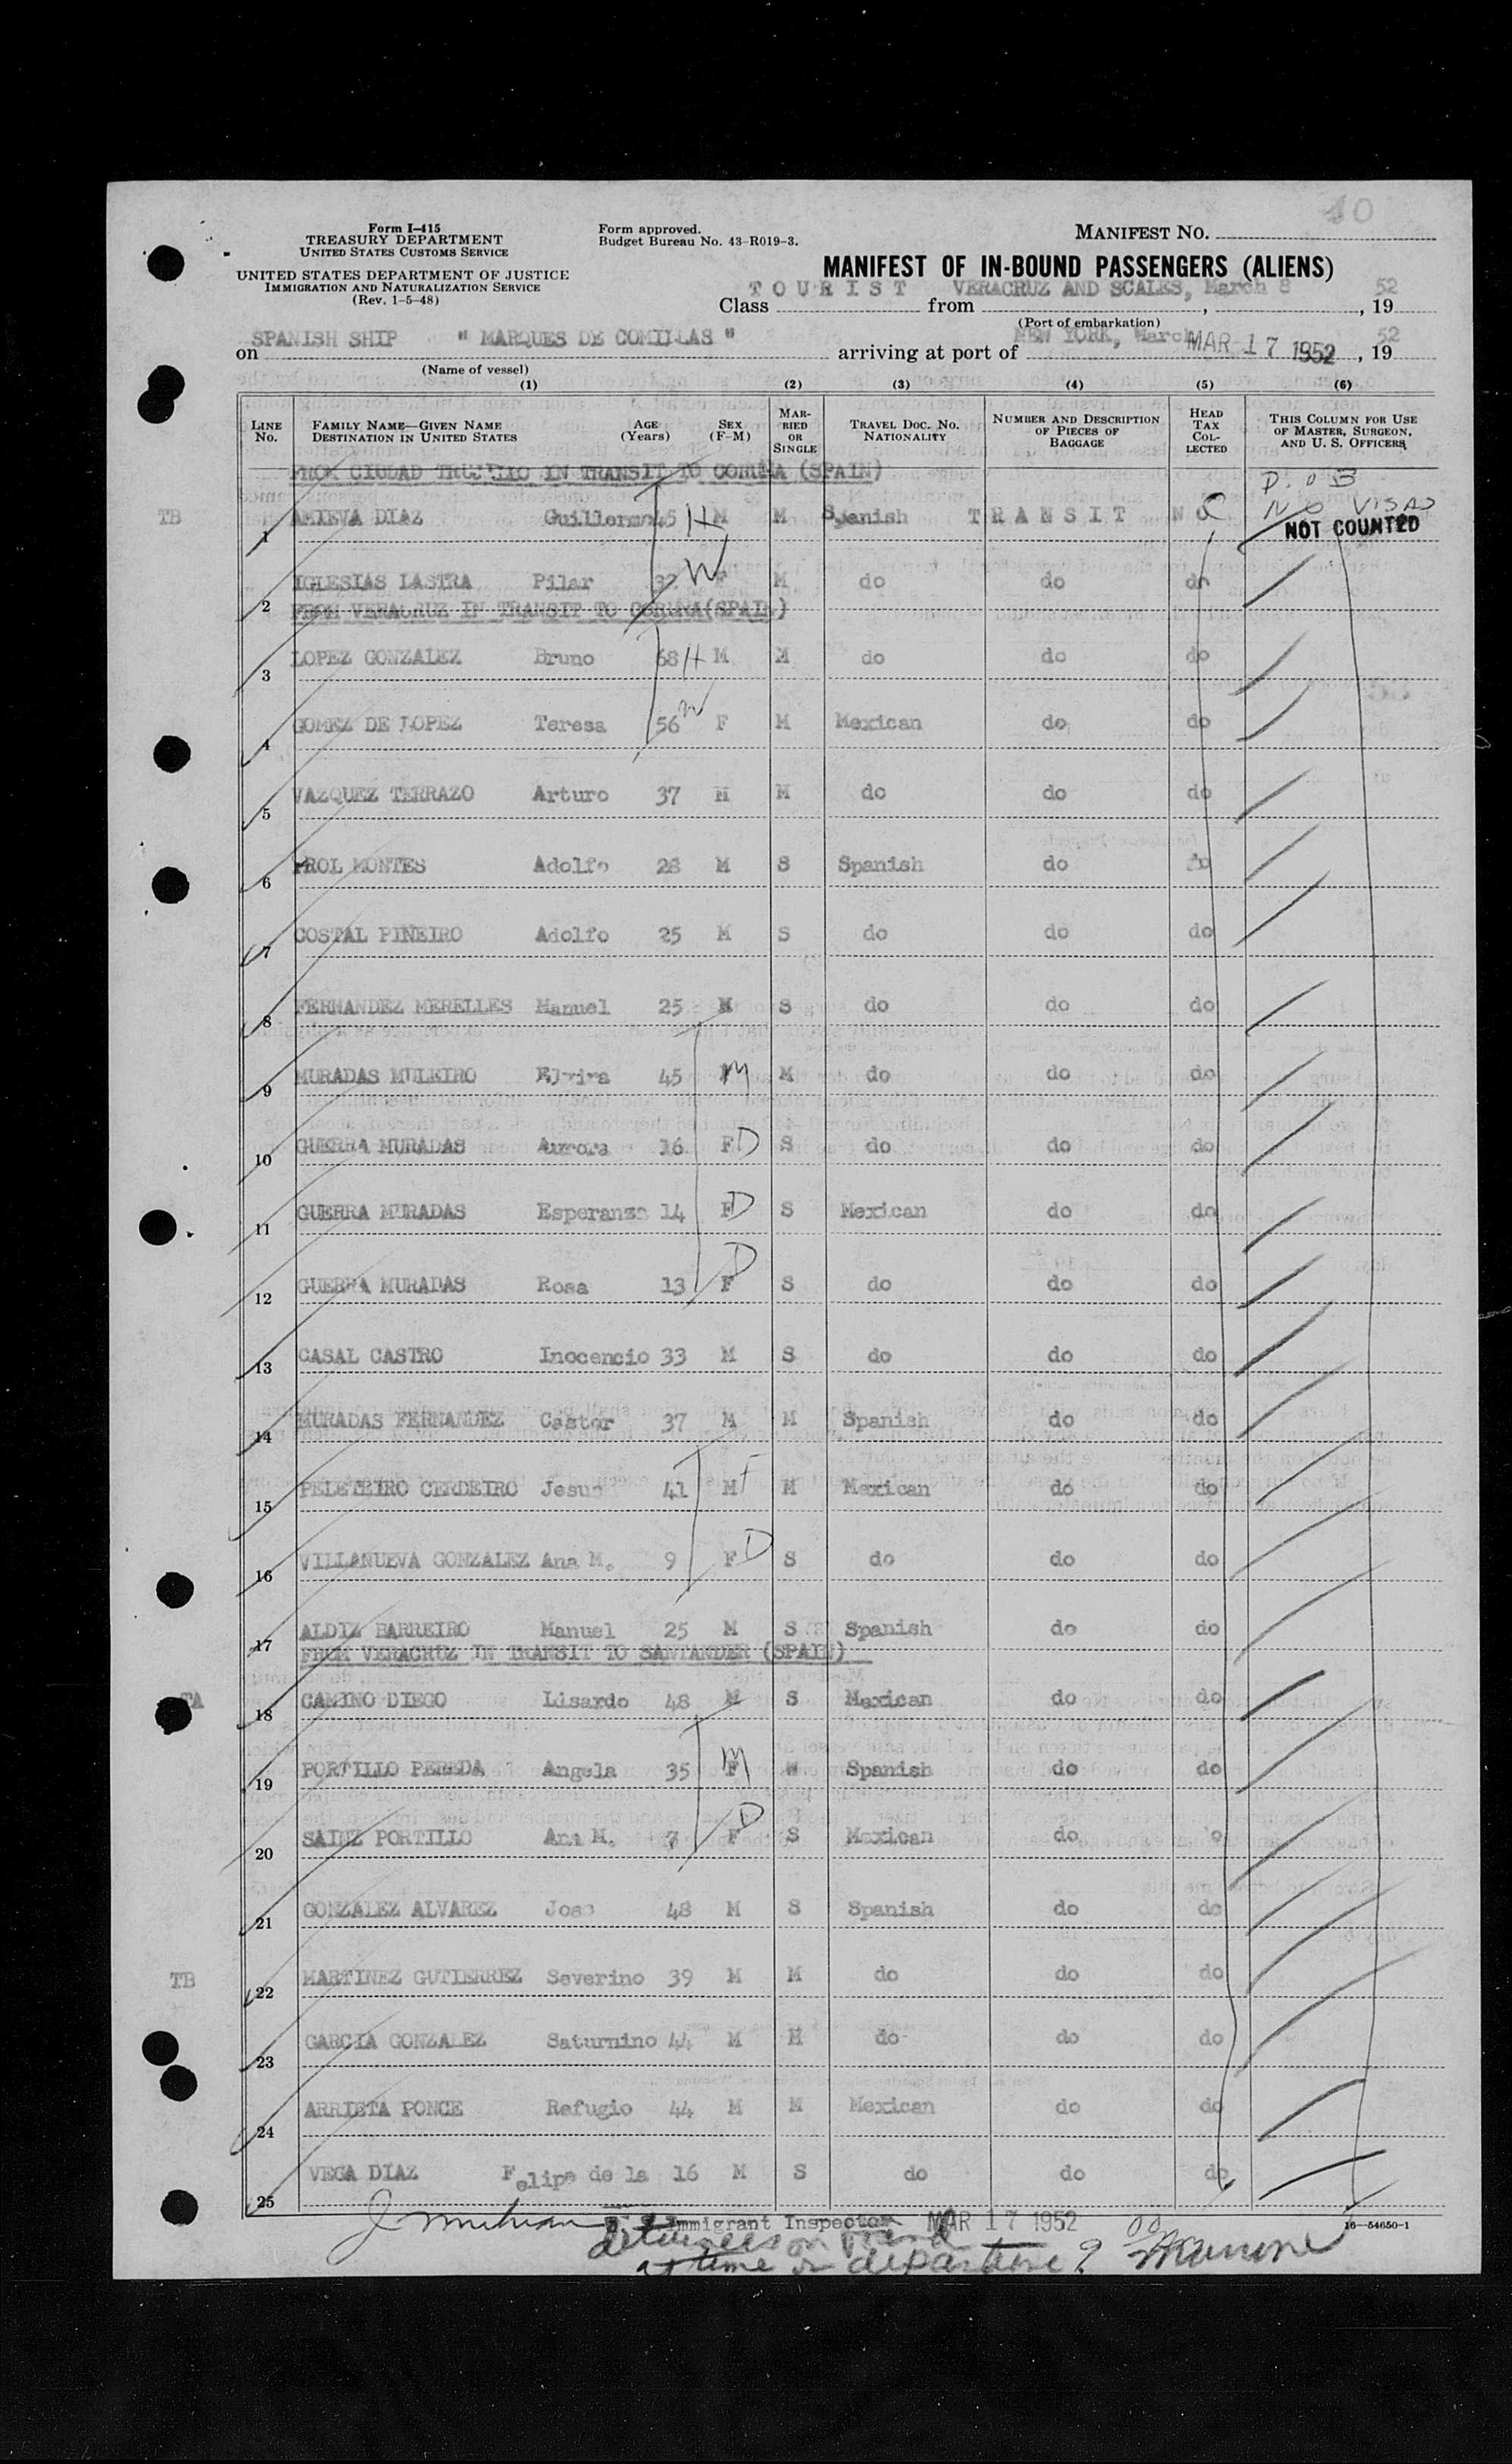 10
Form I-415
TREASURY DEPARTMENT
UNITED STATES CUSTOMS SERVICE
UNITED STATES DEPARTMENT OF JUSTICE
IMMIGRATION AND NATURALIZATION SERVICE
(Rev. 1-5-48)
Form approved.
Budget Bureau No. 43-R019-3.
MANIFEST NO.
MANIFEST OF IN-BOUND PASSENGERS (ALIENS)
Class TOURIST from VERACRUZ AND SCALES, March 8, 19 52
(Port of embarkation)
on SPANISH SHIP " MARQUES DE COMILLAS " arriving at port of NEW YORK, March MAR 17 1952, 19 52
(Name of vessel)
(1) (2) (3) (4) (5) (6)
LINE No. FAMILY NAME—GIVEN NAME DESTINATION IN UNITED STATES AGE (Years) SEX (F-M) MARRIED OR SINGLE TRAVEL DOC. NO. NATIONALITY NUMBER AND DESCRIPTION OF PIECES OF BAGGAGE HEAD TAX COLLECTED THIS COLUMN FOR USE OF MASTER, SURGEON, AND U. S. OFFICERS
FROM CIUDAD TRUJILLO IN TRANSIT TO CORUÑA (SPAIN)
P.O B
NO VISAS
NOT COUNTED
TB 1 AMIEVA DIAZ Guillermo 45 H M M Spanish TRANSIT NO
2 IGLESIAS LASTRA Pilar 37 W F M do do do
FROM VERACRUZ IN TRANSIT TO CORUÑA(SPAIN)
3 LOPEZ GONZALEZ Bruno 68 H M M do do do
4 GOMEZ DE LOPEZ Teresa 56 W F M Mexican do do
5 VAZQUEZ TERRAZO Arturo 37 M M do do do
6 PROL MONTES Adolfo 28 M S Spanish do do
7 COSTAL PINEIRO Adolfo 25 M S do do do
8 FERNANDEZ MERELLES Manuel 25 M S do do do
9 MURADAS MULEIRO Elvira 45 M M do do do
10 GUERRA MURADAS Aurora 16 F D S do do do
11 GUERRA MURADAS Esperanza 14 F D S Mexican do do
12 GUERRA MURADAS Rosa 13 F D S do do do
13 CASAL CASTRO Inocencio 33 M S do do do
14 MURADAS FERNANDEZ Castor 37 M M Spanish do do
15 PELETEIRO CERDEIRO Jesus 41 M F M Mexican do do
16 VILLANUEVA GONZALEZ Ana M. 9 F D S do do do
17 ALDIZ BARREIRO Manuel 25 M S Spanish do do
FROM VERACRUZ IN TRANSIT TO SANTANDER (SPAIN)
TA 18 CAMINO DIEGO Lisardo 48 M S Mexican do do
19 PORTILLO PEREDA Angela 35 F M W Spanish do do
20 SAINZ PORTILLO Ana M. 7 F D S Mexican do o
21 GONZALEZ ALVAREZ Jose 48 M S Spanish do do
TB 22 MARTINEZ GUTIERREZ Severino 39 M M do do do
23 GARCIA GONZALEZ Saturnino 44 M M do do do
24 ARRIETA PONCE Refugio 44 M M Mexican do do
25 VEGA DIAZ Felipe de la 16 M S do do do
Immigrant Inspector MAR 17 1952
16—54650-1
on board
at time of departure